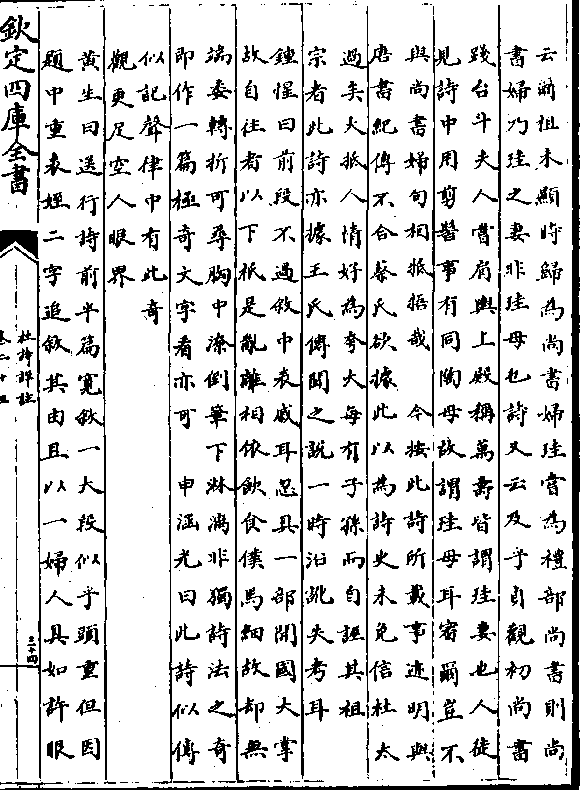 云爾祖未顯時歸為尚書婦珪嘗為禮部尚書則尚
書婦乃珪之妻非珪母也詩又云及乎貞觀初尚書
踐台斗夫人嘗肩輿上殿稱萬壽皆謂珪妻也人徒
見詩中用剪髻事有同陶母故謂珪母耳審爾豈不
與尚書婦句相抵捂哉 今按此詩所載事迹明與
唐書紀傳不合蔡氏欲據此以為詩史未免信杜太
過矣大抵人情好為夸大每有子孫而自誣其祖
宗者此詩亦據王氏傳聞之說一時沿訛失考耳
鍾惺曰前段不過敘中表戚耳忽具一部開國大掌
故自往者以下秪是亂離相依飲食僕馬細故却無
端委轉折可尋胸中潦倒筆下淋漓非獨詩法之奇
即作一篇極奇文字看亦可 申涵光曰此詩似傳
似記聲律中有此奇
觀更足空人眼界
黃生曰送行詩前半篇寛敘一大段似乎頭重但因
題中重表姪二字追敘其由且以一婦人具如許眼
欽定四庫全書
杜詩詳註
三十四